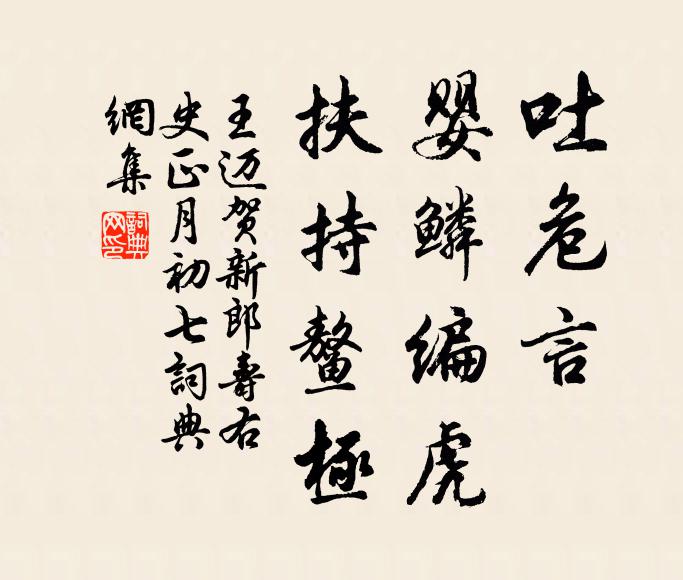 吐危言
婴鳞编虎
扶持鳌極
王迈贺新郎壽右
史正月初七詞典
網集
詞典
网印